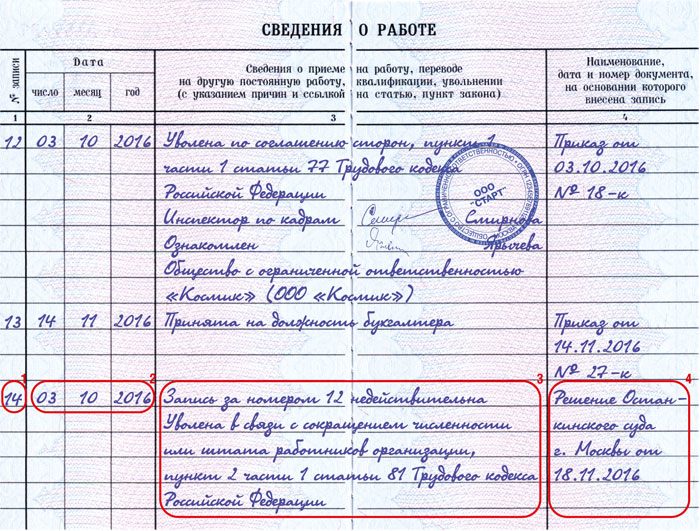 СВЕДЕНИЯ О РАБОТЕ
№ записи
Дата
число
месяц
год
Сведения о приеме на работу, переводе
на другую постоянную работу, квалификации, увольнении
(с указанием причин и ссылкой на статью, пункт закона)
Наименование,
дата и номер документа,
на основании которого
внесена запись
1 2 3 4
12 03 10 2016 Уволена по соглашению сторон, пункт 1 Приказ от
части 1 статьи 77 Трудового кодекса 03.10.2016
Российской Федерации № 18-к
Инспектор по кадрам Смирнова
Ознакомлен Ярычева
ООО
"СТАРТ"
Общество с ограниченной ответственностью
«Космик» (ООО «Космик»)
13 14 11 2016 Принята на должность бухгалтера Приказ от
14.11.2016
№ 27-к
1 2 3 4
14 03 10 2016 Запись за номером 12 недействительна Решение Остан-
Уволена в связи с сокращением численности кинского суда
или штата работников организации, г. Москвы от
пункт 2 части 1 статьи 81 Трудового кодекса 18.11.2016
Российской Федерации